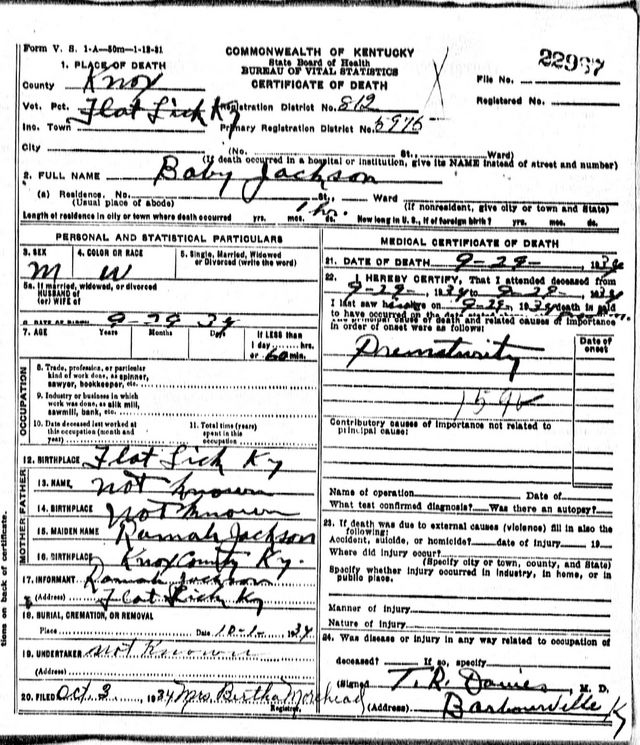 Form V. S. 1-A—50m—1-12-31
COMMONWEALTH OF KENTUCKY
State Board of Health
BUREAU OF VITAL STATISTICS
CERTIFICATE OF DEATH
22987
File No.
Registered No.
1. PLACE OF DEATH
County Knox
Vot. Pct. Flat Lick Ky Registration District No. 812
Inc. Town Primary Registration District No. 5975
City (No. St., Ward)
(If death occurred in a hospital or institution, give its NAME instead of street and number)
2. FULL NAME Baby Jackson
(a) Residence. No. St., Ward
(Usual place of abode) (If nonresident, give city or town and State)
Length of residence in city or town where death occurred yrs. mos. ds. 1 hr. How long in U. S., if of foreign birth? yrs. mos. ds.
PERSONAL AND STATISTICAL PARTICULARS
3. SEX M
4. COLOR OR RACE W
5. Single, Married, Widowed
or Divorced (write the word)
5a. If married, widowed, or divorced
HUSBAND of
(or) WIFE of
6. DATE OF BIRTH 9-29 34
7. AGE Years Months Days If LESS than
1 day hrs.
or 60 min.
OCCUPATION
8. Trade, profession, or particular
kind of work done, as spinner,
sawyer, bookkeeper, etc.
9. Industry or business in which
work was done, as silk mill,
sawmill, bank, etc.
10. Date deceased last worked at
this occupation (month and
year)
11. Total time (years)
spent in this
occupation
12. BIRTHPLACE Flat Lick Ky
FATHER
13. NAME not known
14. BIRTHPLACE Not known
MOTHER
15. MAIDEN NAME Ramah Jackson
16. BIRTHPLACE Knox County Ky.
17. INFORMANT Ramah Jackson
(Address) Flat Lick Ky
18. BURIAL, CREMATION, OR REMOVAL
Place Date 10-1- 1934
19. UNDERTAKER not Known
(Address)
20. FILED Oct 3 1934 Mrs Bertha Morehead
Registrar.
MEDICAL CERTIFICATE OF DEATH
21. DATE OF DEATH 9-29- 1934
22. I HEREBY CERTIFY, That I attended deceased from
9-29-, 1934 to 9-29-, 1934
I last saw h alive on 9-29, 1934 death is said
to have occurred on the date stated
The principal cause of death and related causes of importance
in order of onset were as follows:
Date of
onset
Prematurity
159
Contributory causes of importance not related to
principal cause:
Name of operation Date of
What test confirmed diagnosis? Was there an autopsy?
23. If death was due to external causes (violence) fill in also the
following:
Accident, suicide, or homicide? date of injury 19
Where did injury occur?
(Specify city or town, county, and State)
Specify whether injury occurred in industry, in home, or in
public place.
Manner of injury
Nature of injury
24. Was disease or injury in any way related to occupation of
deceased? If so, specify
(Signed T. R. Davies M. D.
(Address) Barbourville Ky
tions on back of certificate.